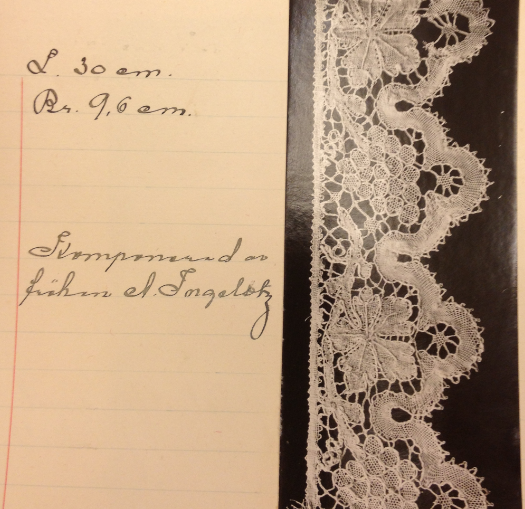 L. 30 cm.
Br. 9,6 cm.
Komponerad av
fröken A. Ingelotz